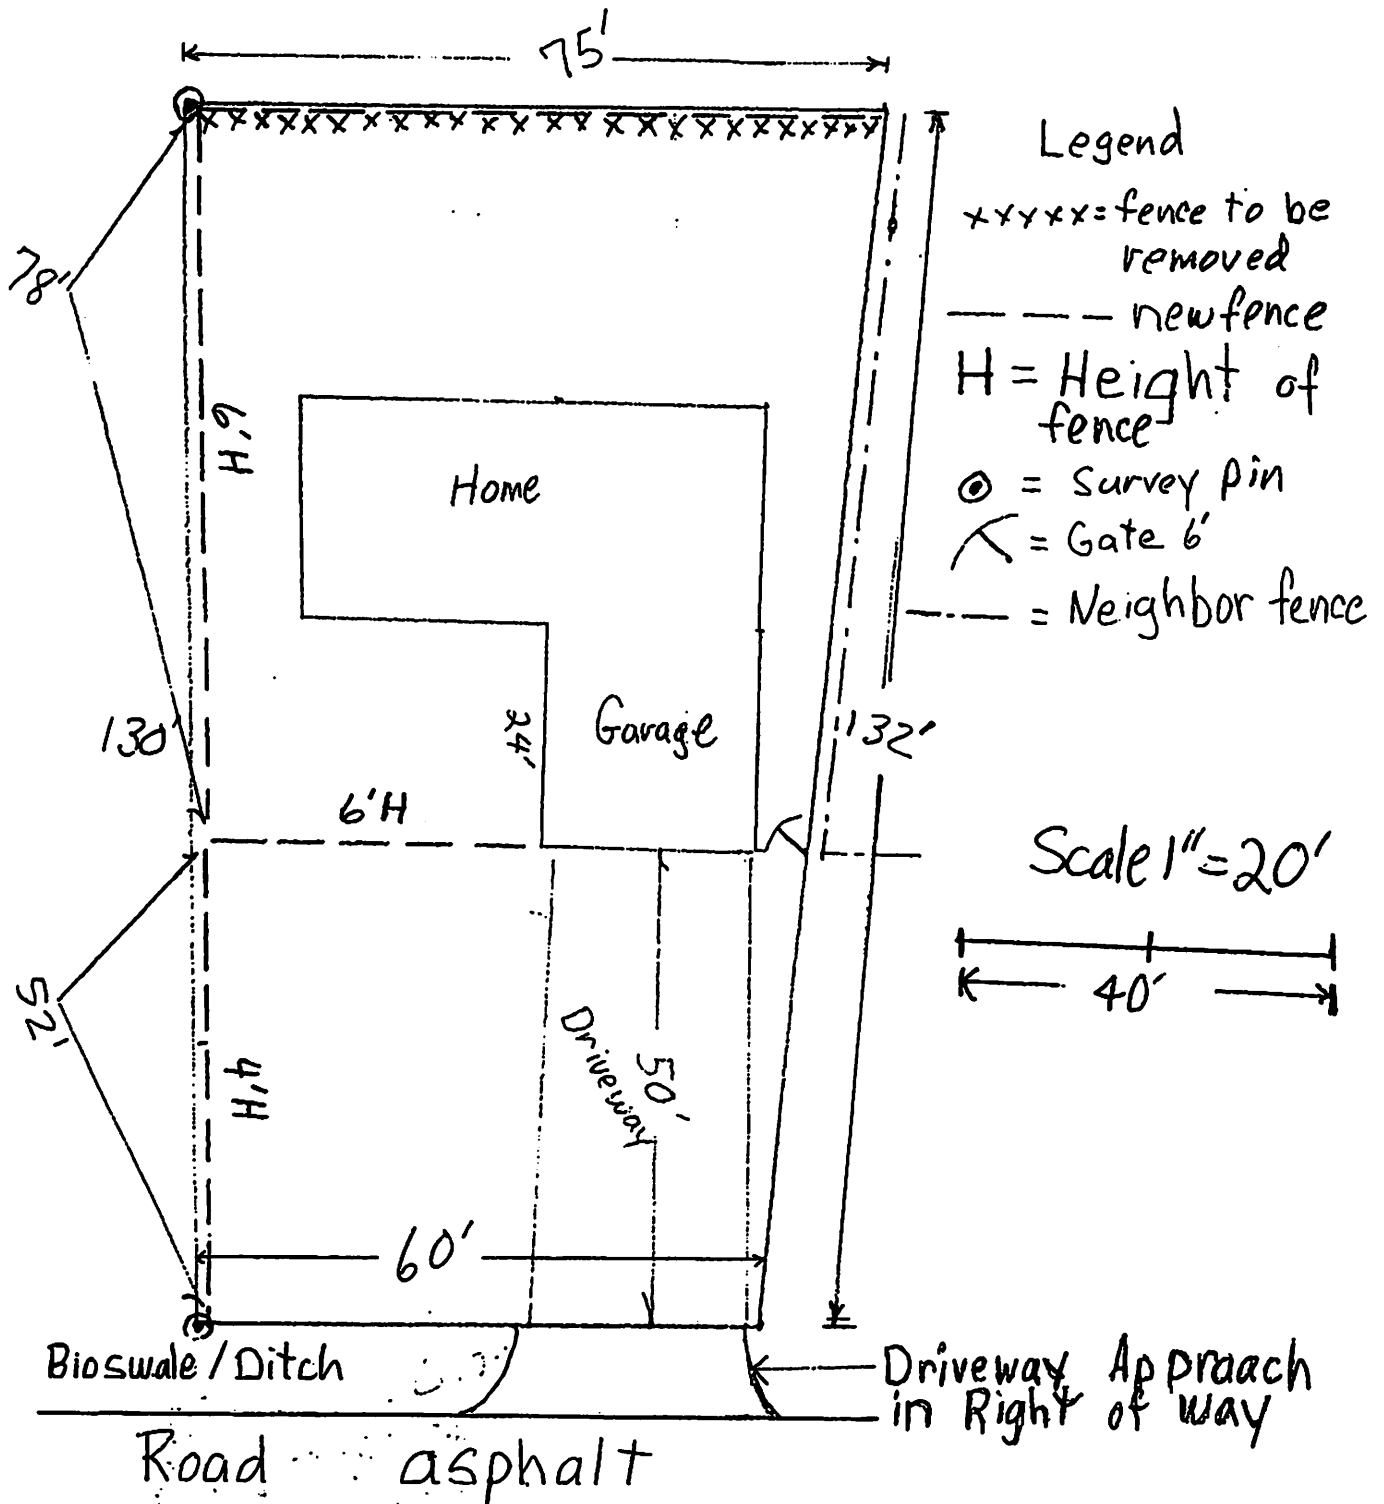 75'
Legend
xxxxx = fence to be
removed
— — — new fence
H = Height of
fence
= Survey pin
= Gate 6'
= Neighbor fence
78'
6'H
Home
130'
24'
Garage
132'
6'H
Scale 1" = 20'
40'
52'
Driveway
50'
4'H
60'
Bioswale / Ditch
Driveway Appraach
in Right of way
Road asphalt